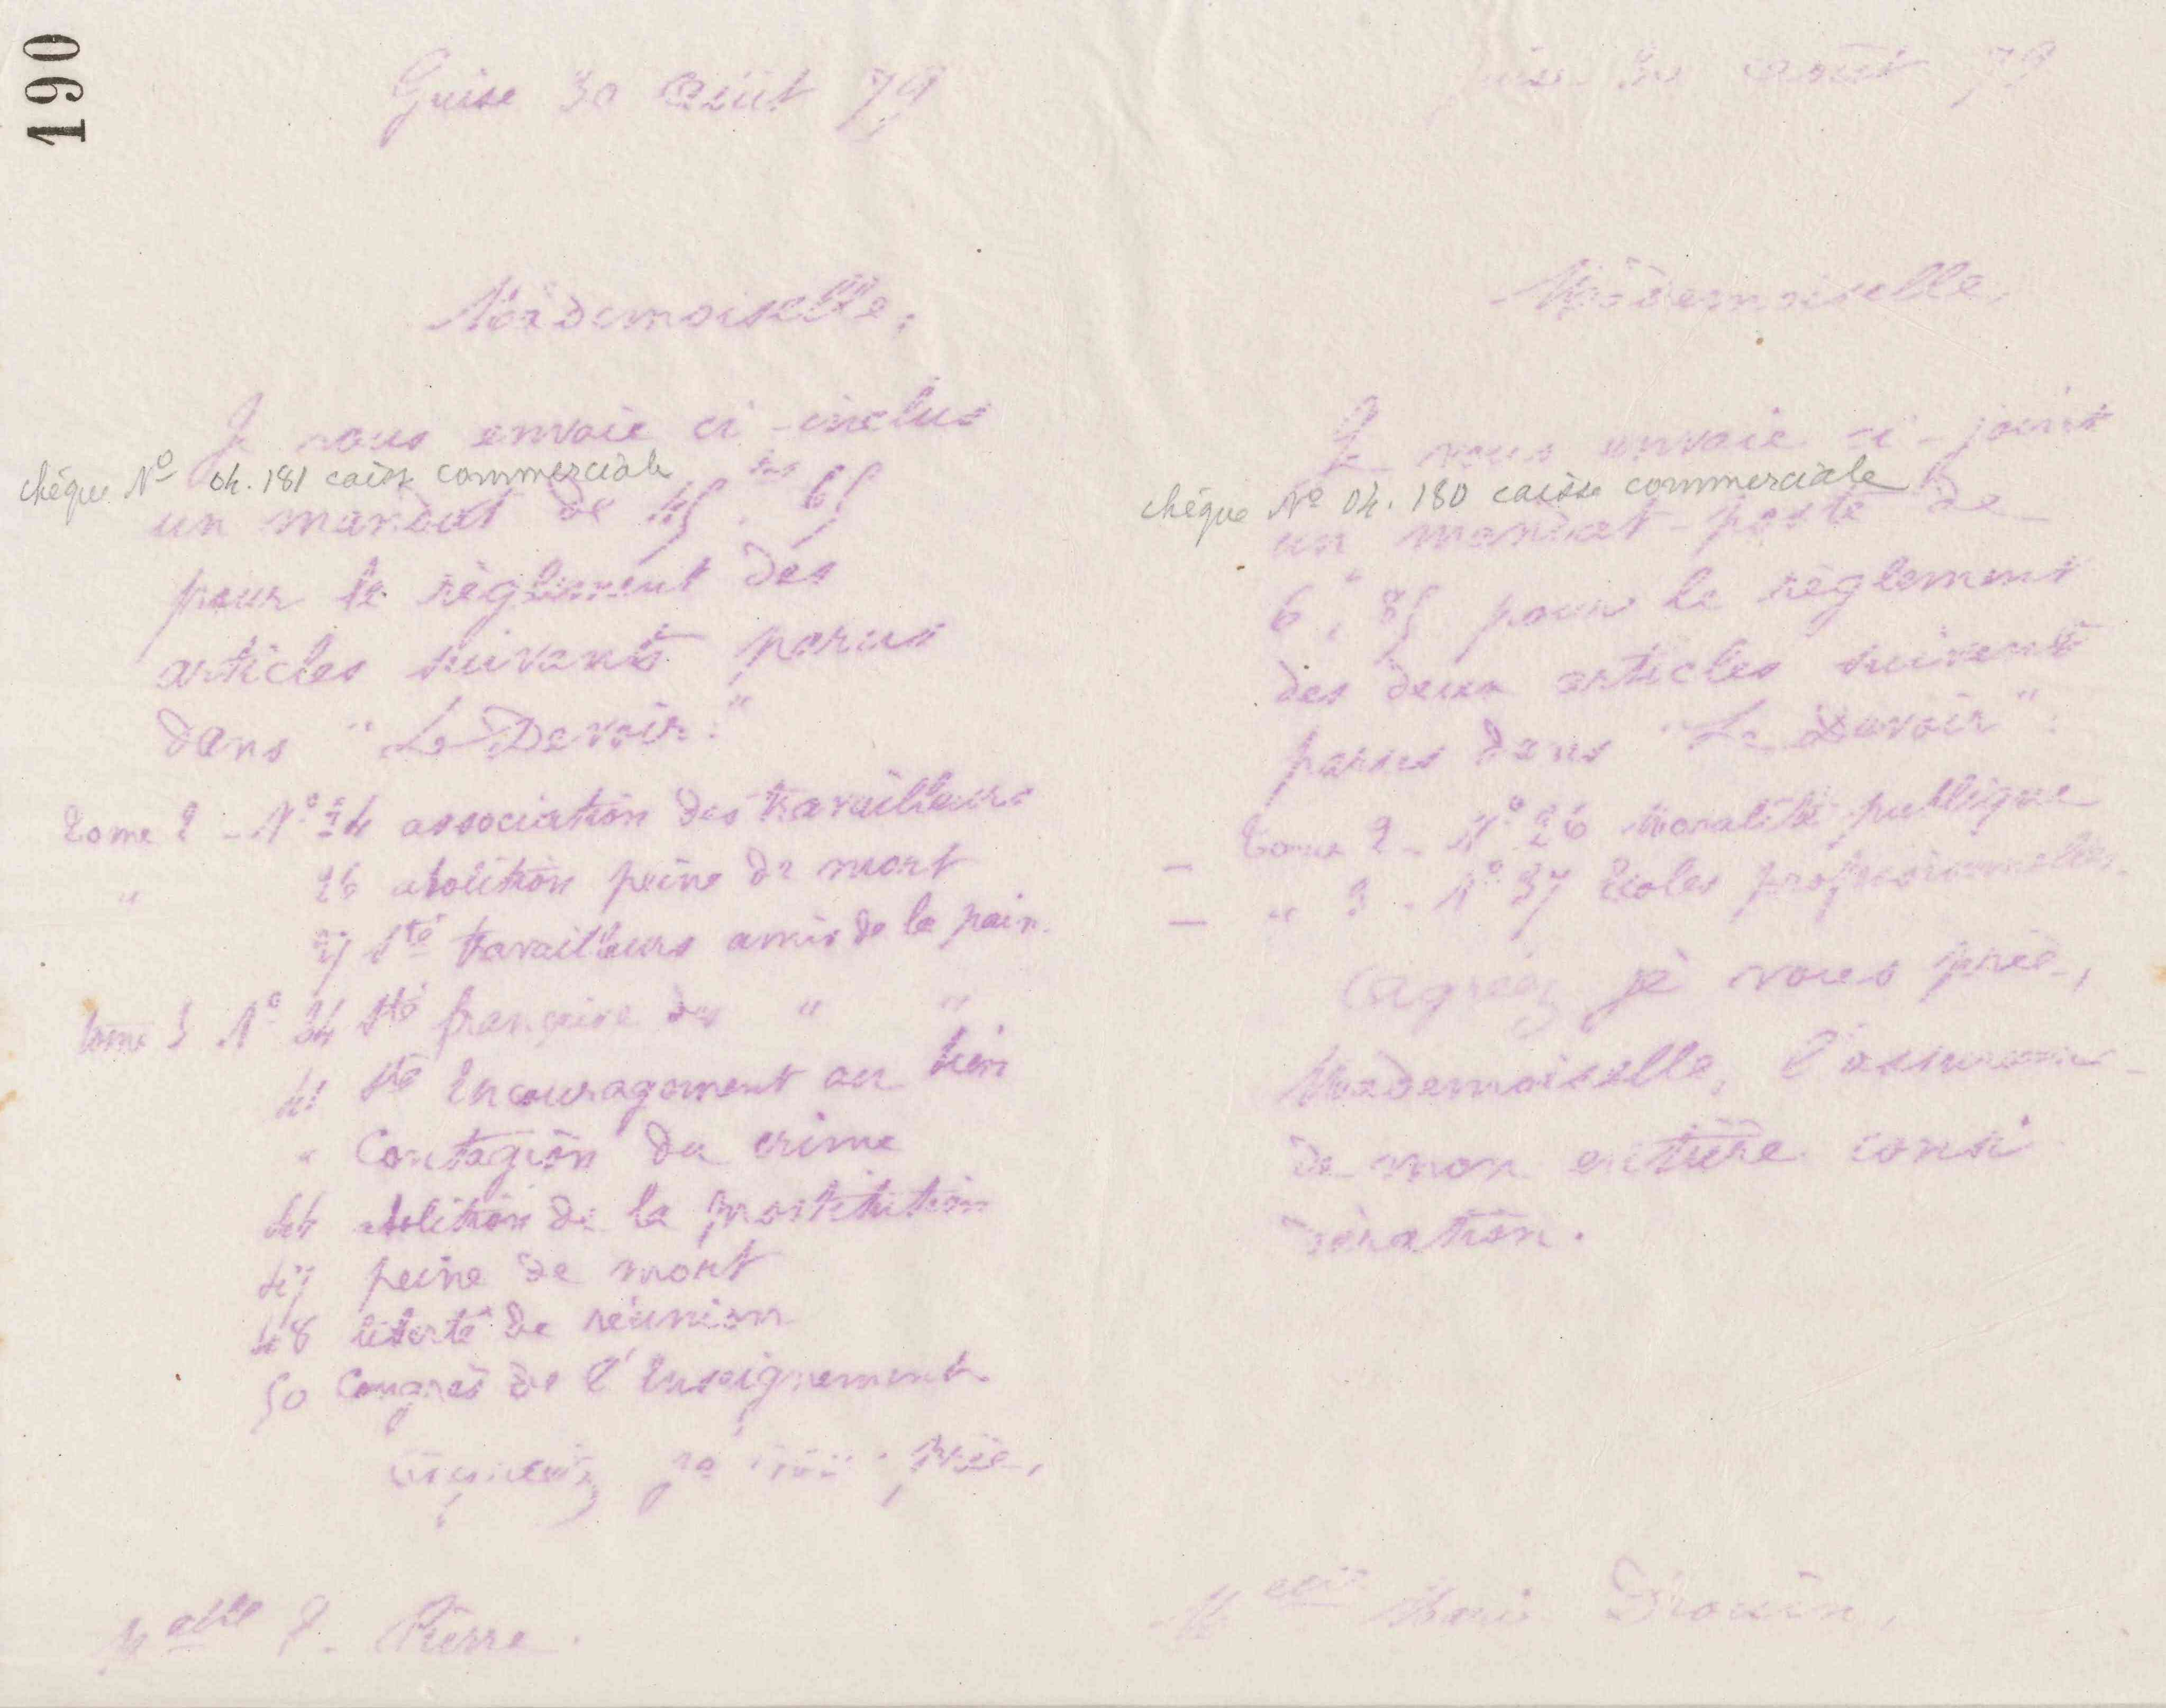 190
Guise 30 Août 79
Mademoiselle,
Je vous envoie ci-inclus
chèque No 04.181 caisse commerciale
un mandat de 45 frs 65
pour le règlement des
articles suivants parus
dans "Le Devoir:"
Tome 2 - No 24 association des travailleurs
" 26 abolition peine de mort
27 Sté travailleurs amis de la paix
tome 3 No 34 Sté française des " "
41 Sté Encouragement au bien
" Contagion du crime
44 abolition de la prostitution
47 peine de mort
48 liberté de réunion
50 Congrès de l'Enseignement
prie,
Melle P. Pierre.
Guise 30 Août 79
Mademoiselle,
Je vous envoie ci-joint
chèque No 04.180 caisse commerciale
un mandat-poste de
6, 85 pour le règlement
des deux articles suivants
parus dans "Le Devoir":
- Tome 2 - No 26 Moralité publique
- " 3 - No 37 Ecoles professionnelles.
Agréez je vous prie,
Mademoiselle, l'assurance
de mon entière consi
dération.
Melle Marie Drouin,